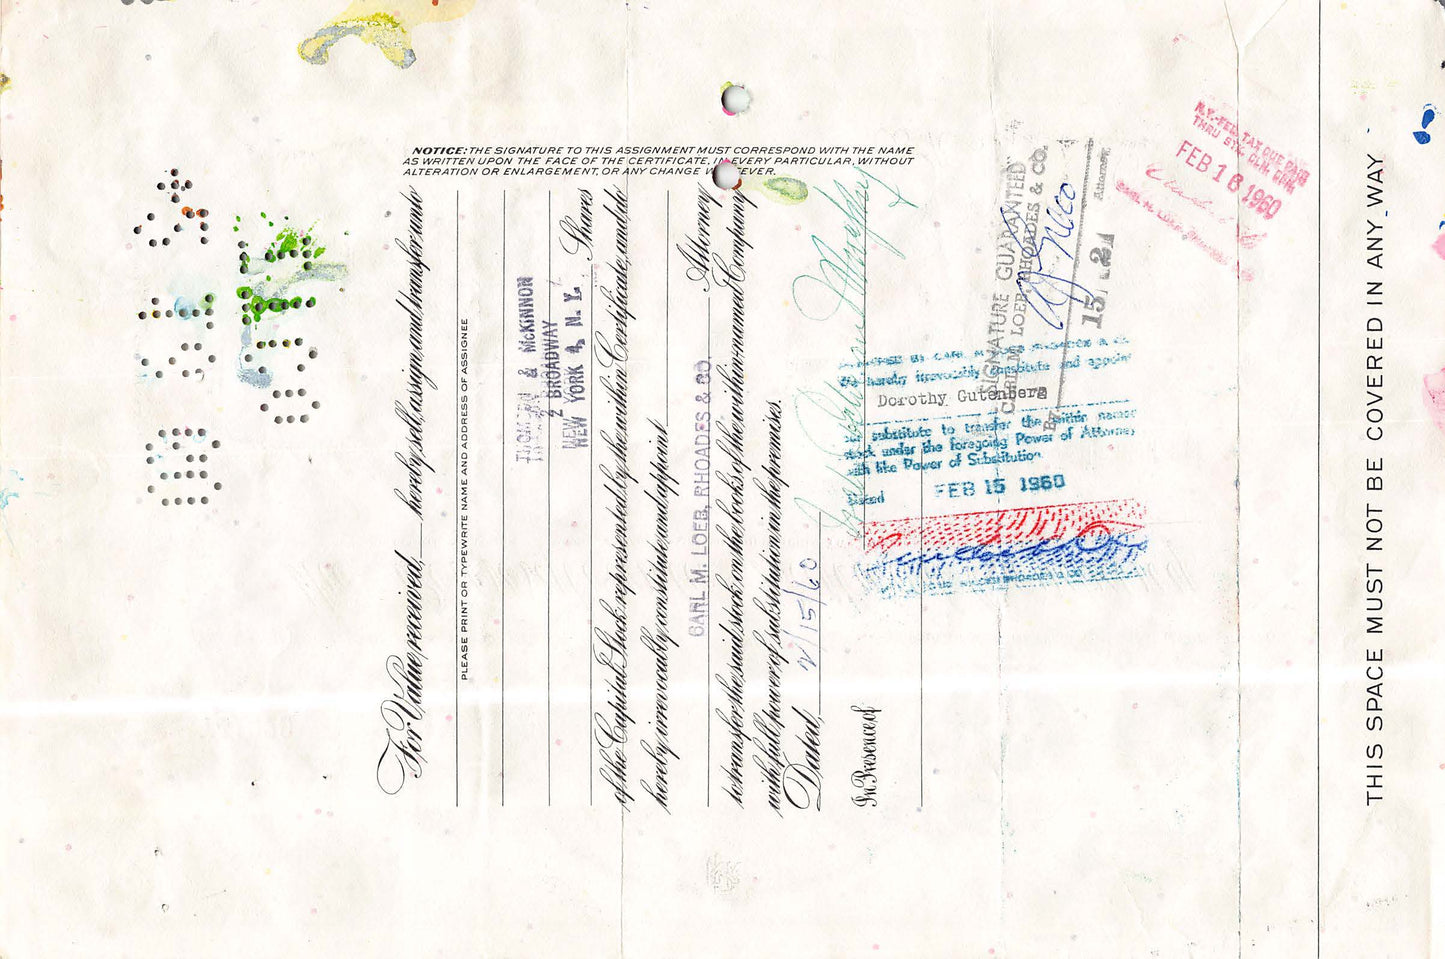 NOTICE: THE SIGNATURE TO THIS ASSIGNMENT MUST CORRESPOND WITH THE NAME
AS WRITTEN UPON THE FACE OF THE CERTIFICATE, IN EVERY PARTICULAR, WITHOUT
ALTERATION OR ENLARGEMENT, OR ANY CHANGE WEVER.
For Value received, hereby sell, assign and transfer unto
PLEASE PRINT OR TYPEWRITE NAME AND ADDRESS OF ASSIGNEE
& McKINNON
2 BROADWAY
NEW YORK 4, N. Y.
Shares
of the Capital Stock represented by the within Certificate, and do
hereby irrevocably constitute and appoint
CARL M. LOEB, RHOADES & CO. Attorney
to transfer the said stock on the books of the within-named Company
with full power of substitution in the premises.
Dated, 2/15/60
In Presence of
SIGNATURE GUARANTEED
CARL M. LOEB, RHOADES & CO.
By
Attorney
15.24
hereby irrevocably constitute and appoint
Dorothy Gutenberg
substitute to transfer the within named
stock under the foregoing Power of Attorney
with like Power of Substitution
Dated FEB 15 1960
N.Y.-FED. TAX DUE PAID
THRU STK. CLRN. CORP.
FEB 18 1960
CARL M. LOEB RHOADES
THIS SPACE MUST NOT BE COVERED IN ANY WAY